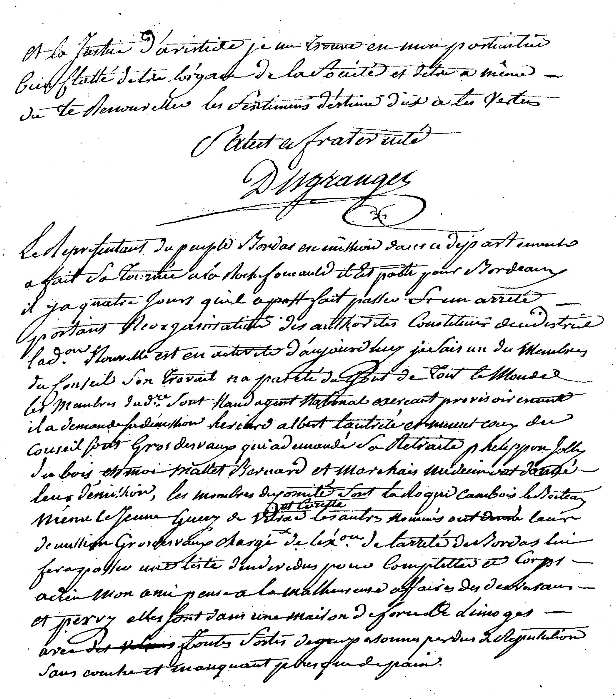 et la Justice d'aristide je me trouve en mon particulier
bien flatté detre lorgane de la Société et detre a même
de te Renouveller les Sentimens d'estime dus a tes Vertus
Salut et fraternité
Dugranges
Le Representant du peuple Bordas en mission dans ce departement
a fait Sa tournée a la Rochefoucauld il Est parti pour Bordeaux
il y a quatre Jours quil a fait passer Un arrêté
portant Reorganisation des authorités Constituées du district
la d.on Nouvelle est en activité d'aujourdhuy je fais un des Membres
du Conseil Son travail na pas été du Gout de Tout le Monde
les Membres du d.re Sont agent National exercant provisoirement
il a demandé sa demission albert et ceux du
Conseil Sont Grosdevaux qui a demandé Sa Retraite phelippon Jolly
dubois et moi mallet Bernard et Marchais medecin ont
leur demission, les membres du comité Sont laroque cambois le
même le Jeune Guery de les autres nommés ont leur
demission Grosdevaux chargé de lex.on de larrêté de Bordas lui
fera passer une liste dindividus pour Completter ce Corps
adieu Mon ami pense a la malheureuse affaire des
et perry elles sont dans une maison de force de Limoges
avec toutes Sortes de personnes perdues de Reputation
Sans couche et manquant presque de pain.